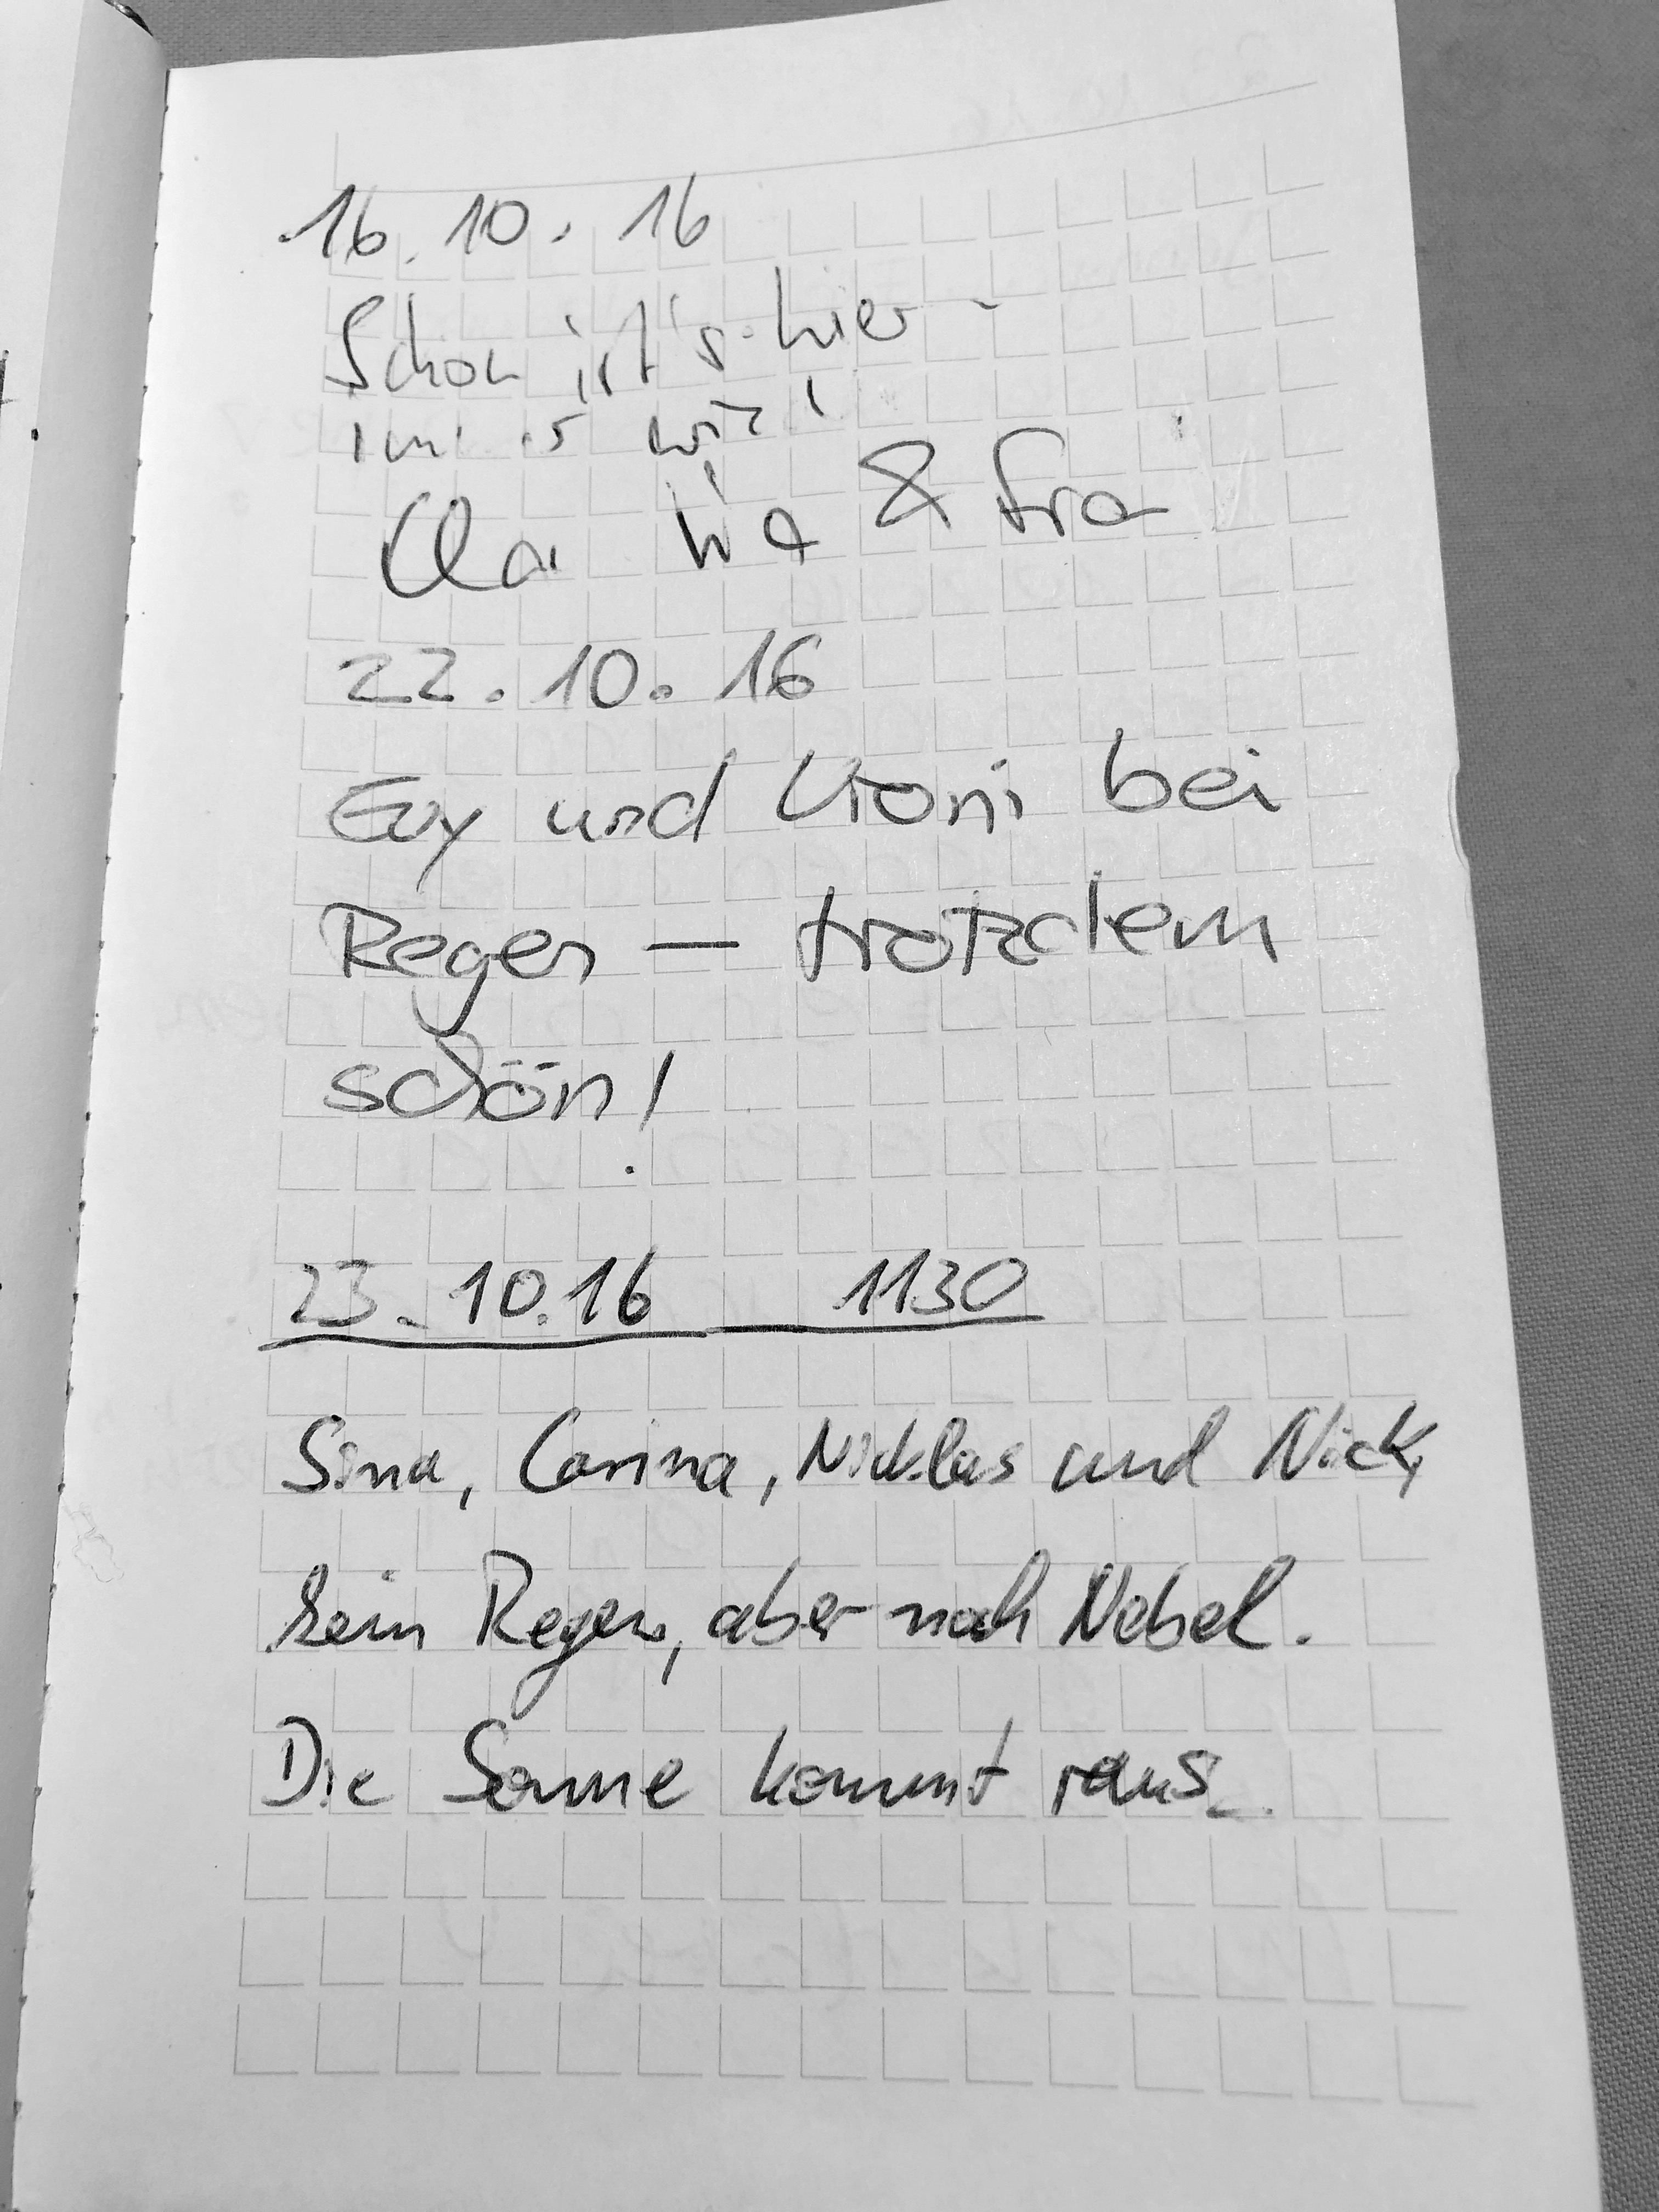 16.10.16
Schön ist's hier -
& Fra
22.10.16
Evy und Vroni bei
Regen — trotzdem
schön!
23.10.16 1130
Sina, Carina, Nicklas und Nick,
kein Regen, aber noch Nebel.
Die Sonne kommt raus.